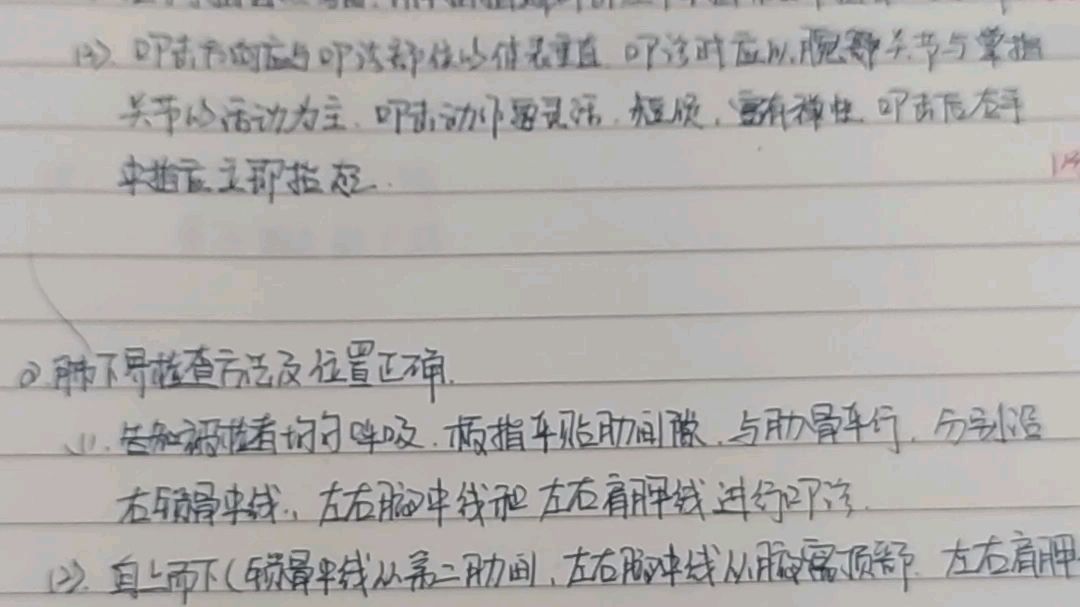 (3) 叩击方向应与叩诊部位的体表垂直 叩诊时应以腕部关节与掌指
关节的活动为主. 叩击动作要灵活, 短促, 富有弹性. 叩击后右手
中指应立即抬起.
② 肺下界检查方法及位置正确.
(1). 告知被检者均匀呼吸. 板指平贴肋间隙, 与肋骨平行, 分别沿
右锁骨中线., 左右腋中线和左右肩胛线进行叩诊.
(2). 自上而下(锁骨中线从第二肋间, 左右腋中线从腋窝顶部. 左右肩胛